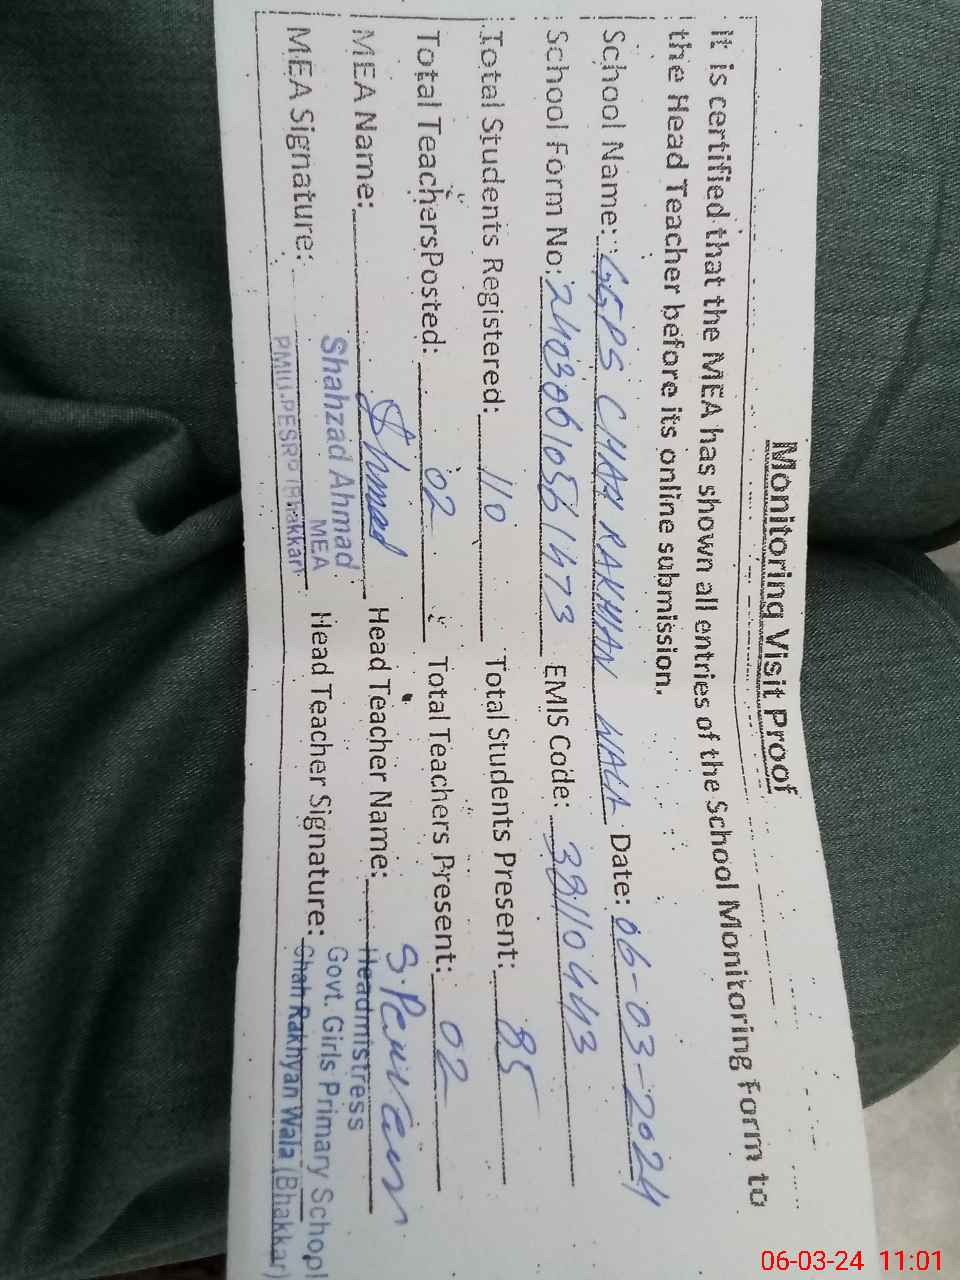 Monitoring Visit Proof
It is certified that the MEA has shown all entries of the School Monitoring Form to
the Head Teacher before its online submission.
School Name: GGPS CHAH RAKHIAN WALA Date: 06-03-2024
School Form No: 24030610561473 EMIS Code: 38110443
Total Students Registered: 110 Total Students Present: 85
Total Teachers Posted: 02 Total Teachers Present: 02
MEA Name: Ahmad Head Teacher Name: S.Parveen
MEA Signature: Shahzad Ahmad Head Teacher Signature: Headmistress
MEA Govt. Girls Primary School
PMIU.PESRP (Bhakkar) Chah Rakhyan Wala (Bhakkar)
06-03-24 11:01